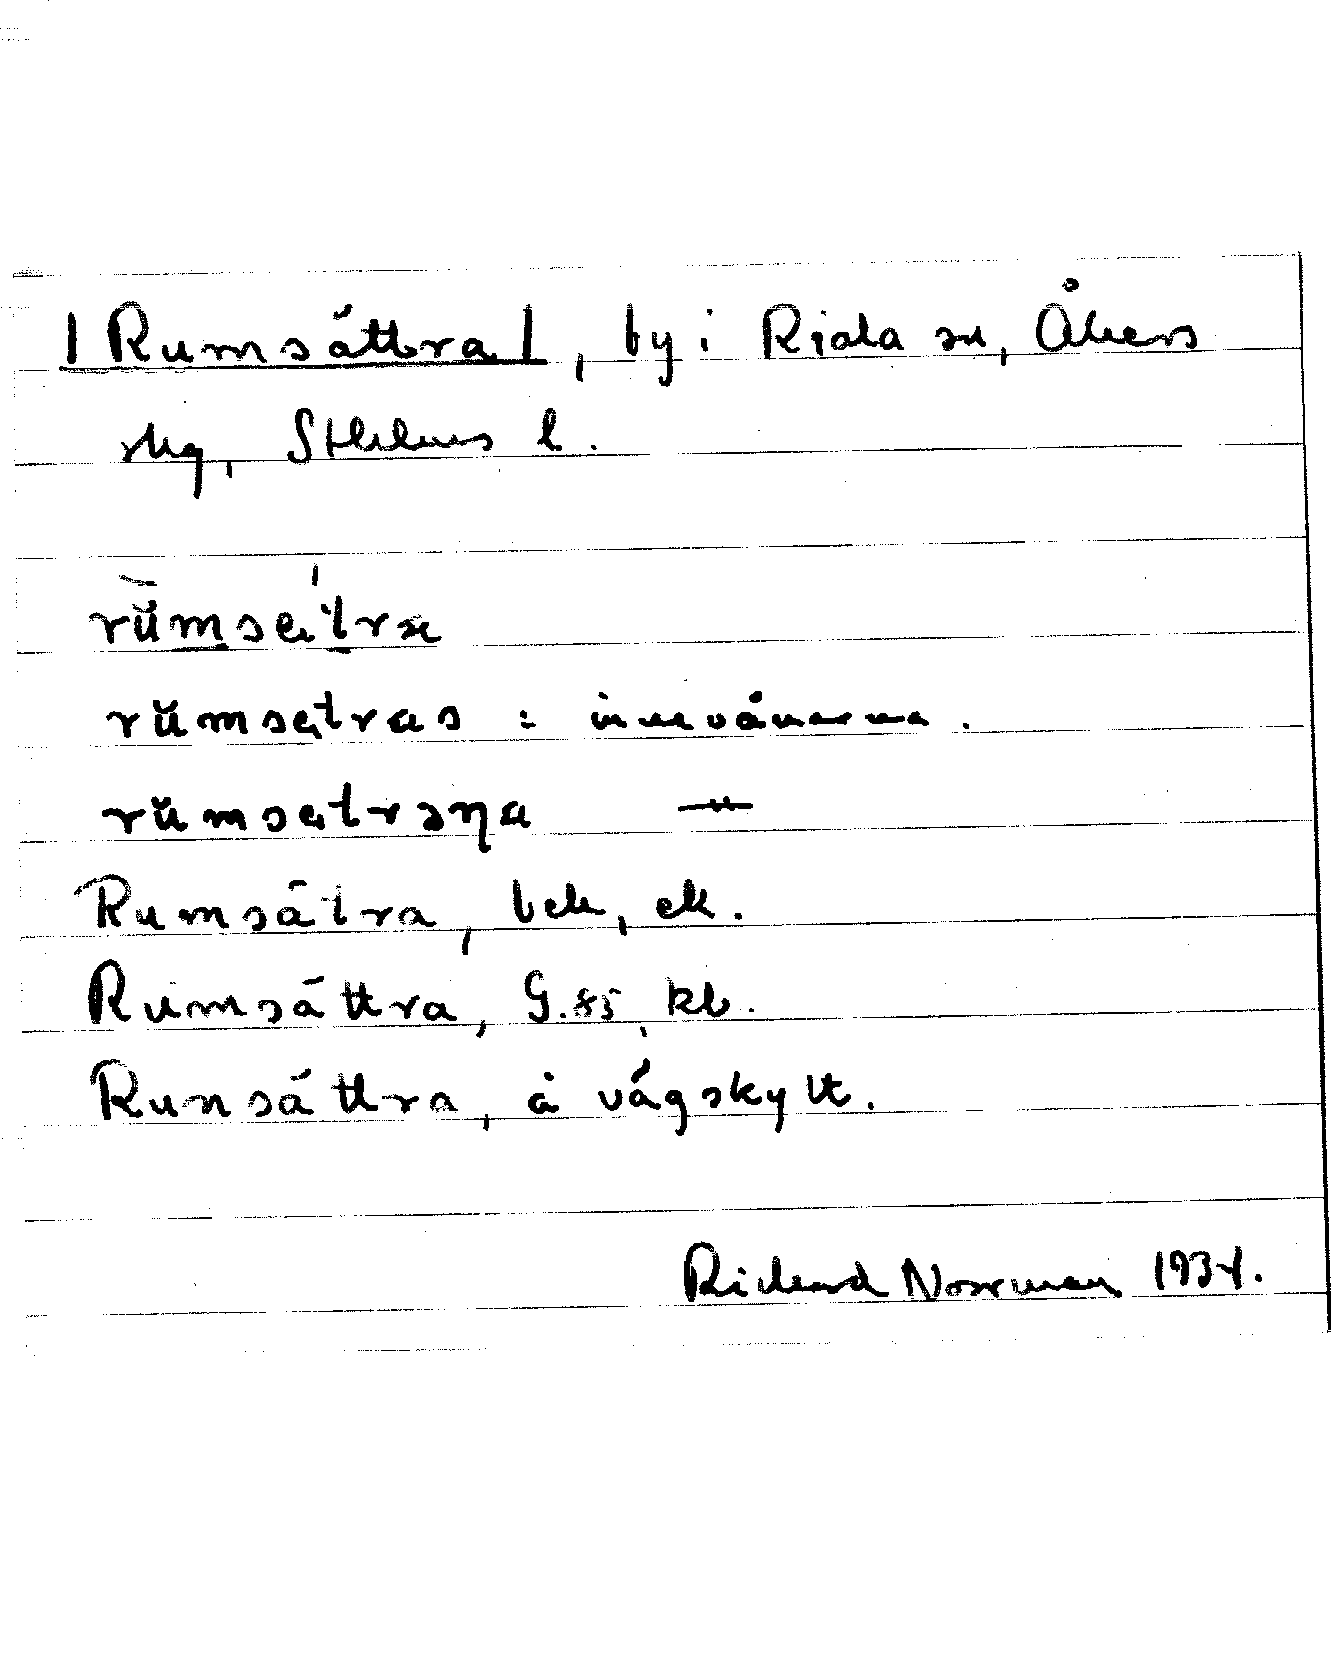 |Rumsättra|, by i Riala sn, Åkers
skg, Sthlms l.
rŭmsätra
rŭmsätras : innevånarna.
rŭmsätrəṇa —"—
Rumsätra, bek, ek.
Rumsättra, G.85, kb.
Runsättra, å vägskylt.
Rickard Norrman 1934.